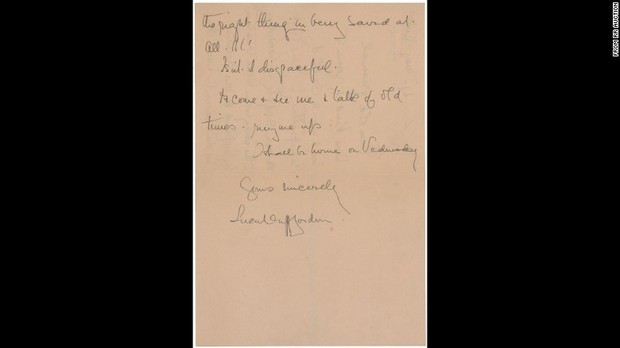 the right thing in being saved at
all!!!
Isn't it disgraceful.
Do come & see me & talk of old
times. ring me up.
I shall be home on Wednesday
Yours sincerely
Duff Gordon.
FROM RR AUCTION